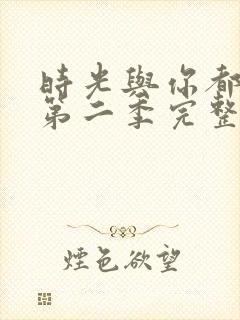 時光與你都
第二季完整
煙色欲望